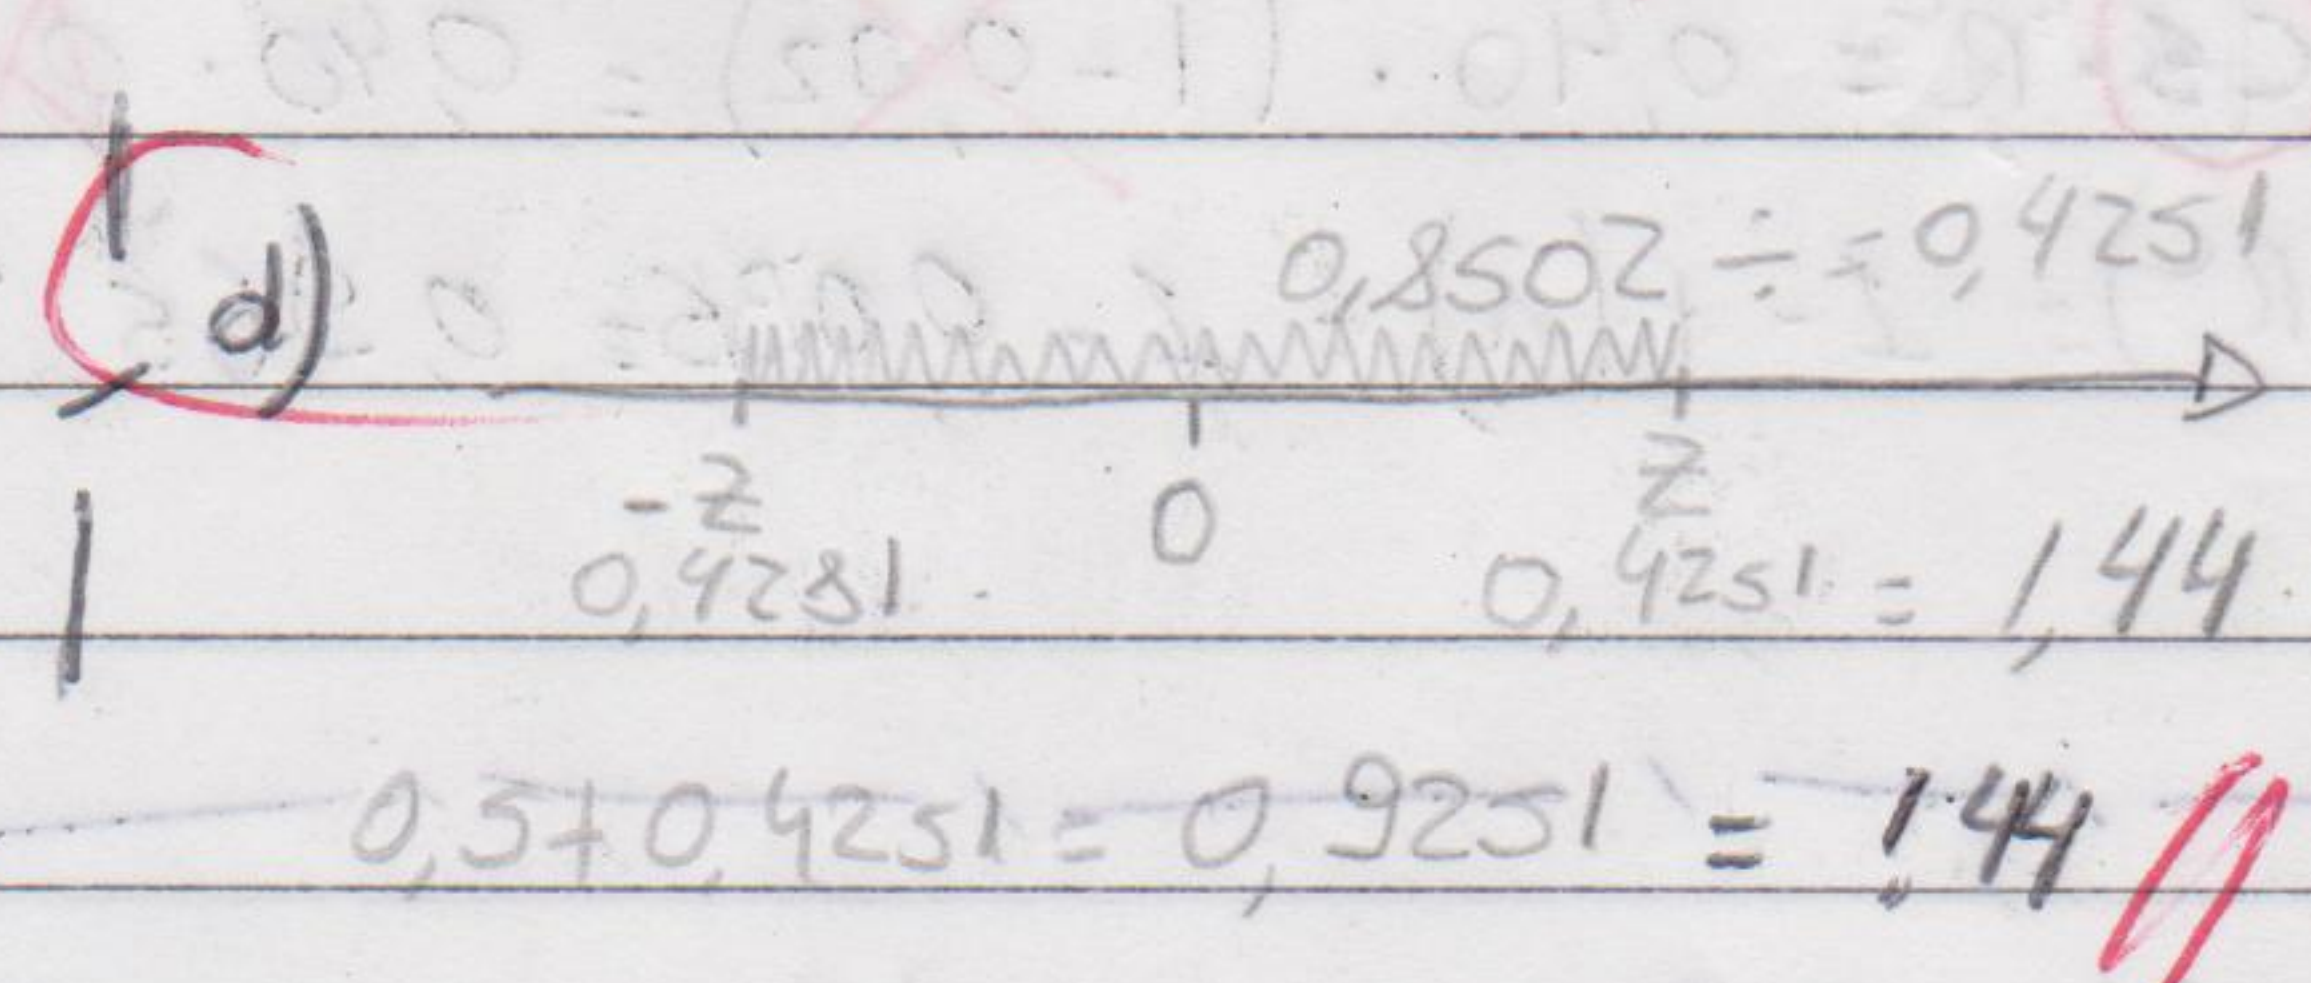 d) 0,8502 ÷ = 0,4251
-z 0 z
0,4251 0,4251 = 1,44
0,5 + 0,4251 = 0,9251 = 1,44